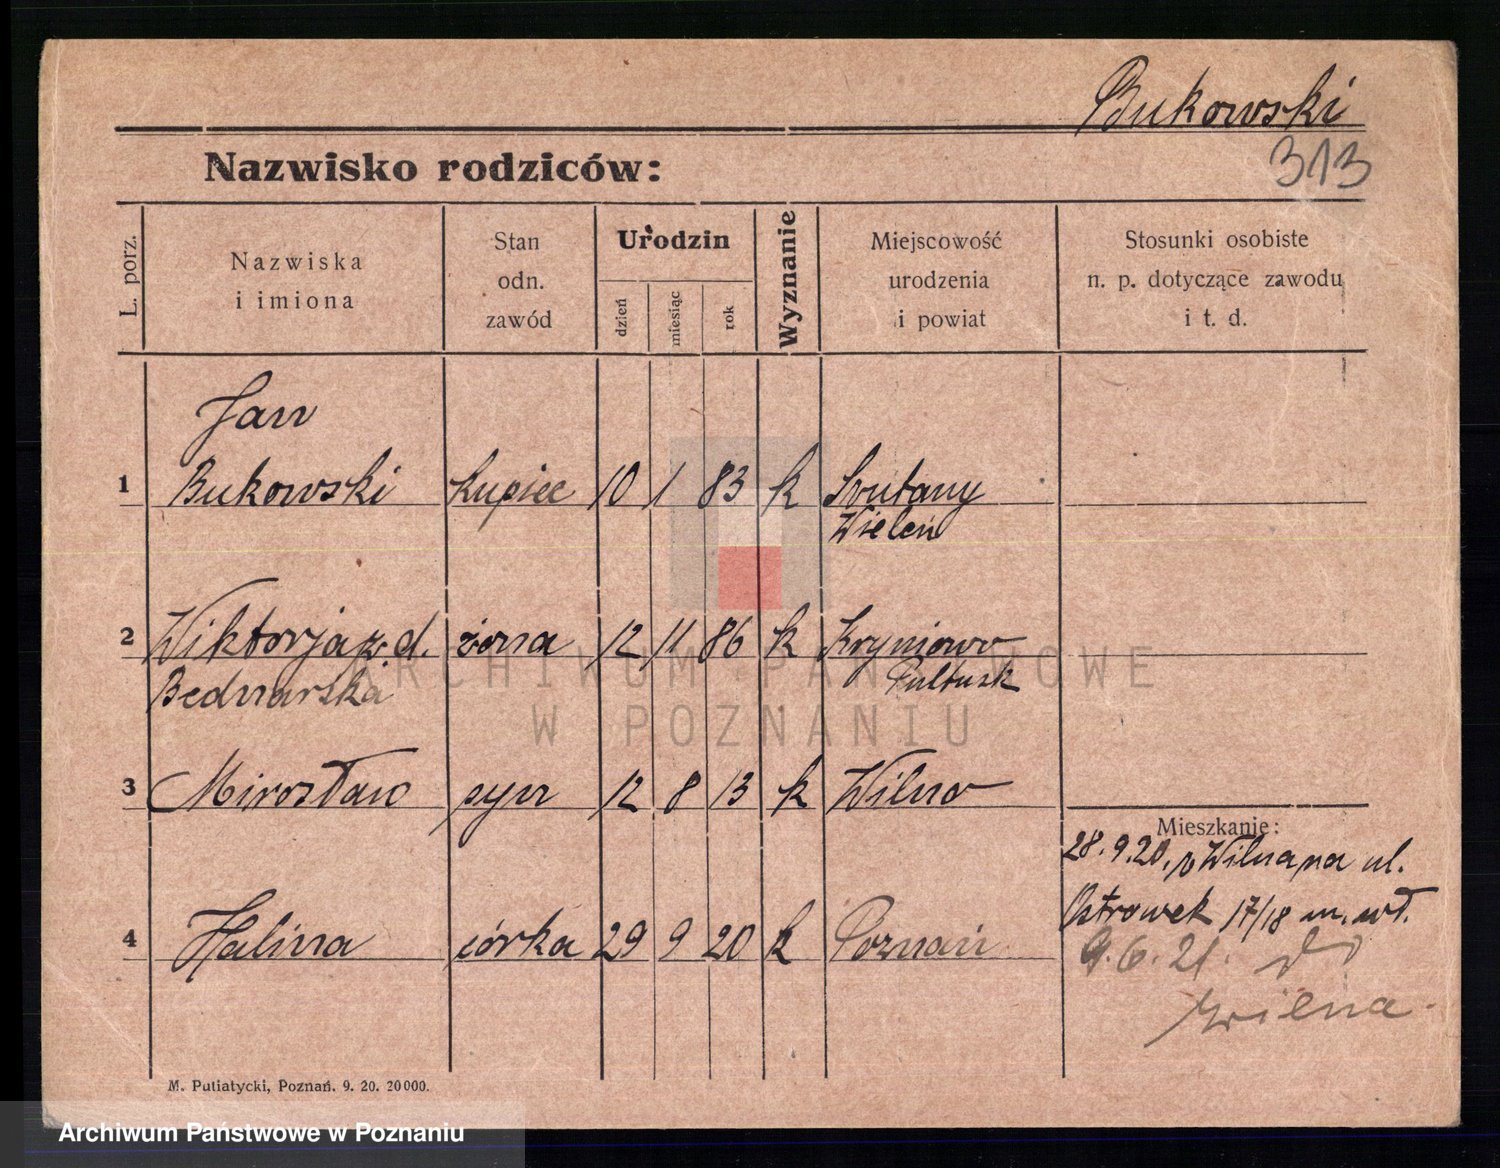 Bukowski
313
Nazwisko rodziców:
L. porz.
Nazwiska
i imiona
Stan
odn.
zawód
Urodzin
dzień
miesiąc
rok
Wyznanie
Miejscowość
urodzenia
i powiat
Stosunki osobiste
n. p. dotyczące zawodu
i t. d.
Jan
1 Bukowski kupiec 10 1 83 k
Wileń
2 Wiktorja z. d. żona 12 11 86 k Kryniowo
Bednarska Pułtusk
3 Mirosław syn 12 8 13 k Wilno
Mieszkanie:
28.9.20. z Wilna na ul.
Ostrowek 17/18 m. wł.
4 Halina córka 29 9 20 k Poznań
9.6.21. do
Wilna.
M. Putiatycki, Poznań. 9. 20. 20000.
ARCHIWUM PAŃSTWOWE
W POZNANIU
Archiwum Państwowe w Poznaniu